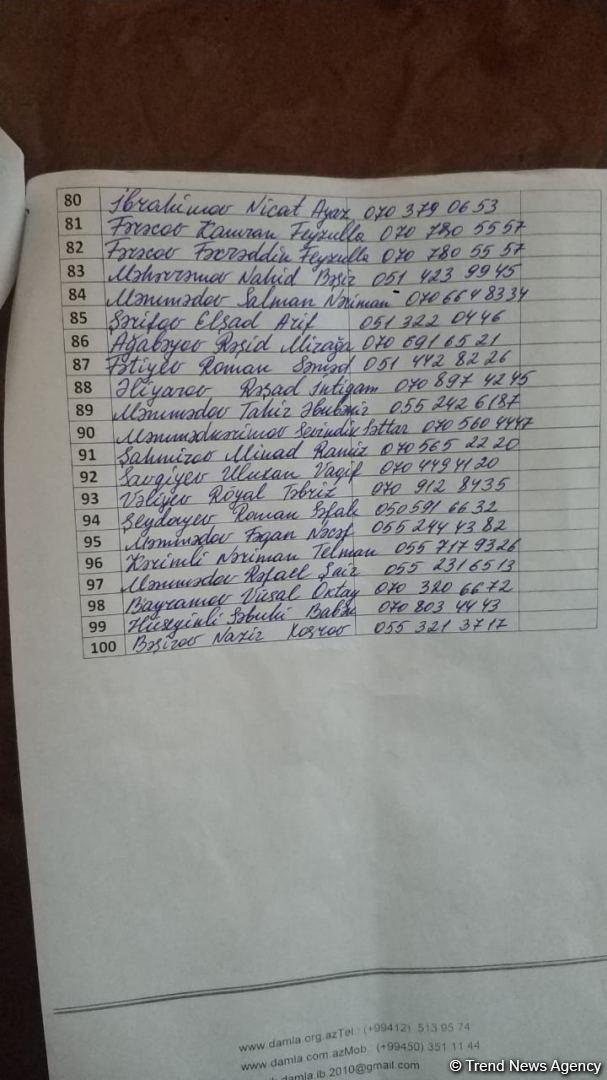 80 İbrahimov Nicat Ayaz 070 379 06 53
81 Fərəcov Kamran Feyzulla 070 780 55 57
82 Fərəcov Fəxrəddin Feyzulla 070 780 55 57
83 Məhərrəmov Nahid Bəşir 051 423 99 45
84 Məmmədov Salman Nəriman 070 664 83 34
85 Şərifov Elşad Arif 051 322 04 46
86 Ağabəyov Rəşid Mirağa 070 691 65 21
87 Fətiyev Roman Səməd 051 442 82 26
88 Əliyarov Rəşad İntiqam 070 897 42 45
89 Məmmədov Tahir 055 242 61 87
90 Məmmədkərimov Sevindik Səttar 070 560 44 47
91 Şahmirov Ramiz 070 565 22 20
92 Vaqif 070 449 41 20
93 Vəliyev Röyal Təbriz 070 912 84 35
94 Seydayev Roman 050 591 66 32
95 Məmmədov Nəcəf 055 244 43 82
96 Kərimli Nəriman Telman 055 717 93 26
97 Məmmədov Rəfael Şair 055 231 65 13
98 Bayramov Vüsal Oktay 070 320 66 72
99 Hüseyinli Səbuhi Babək 070 803 44 43
100 Bəşirov Nazir Xosrov 055 321 37 17
www.damla.org.az Tel.: (+99412) 513 95 74
www.damla.com.az Mob.: (+99450) 351 11 44
damla.ib.2010@gmail.com
© Trend News Agency